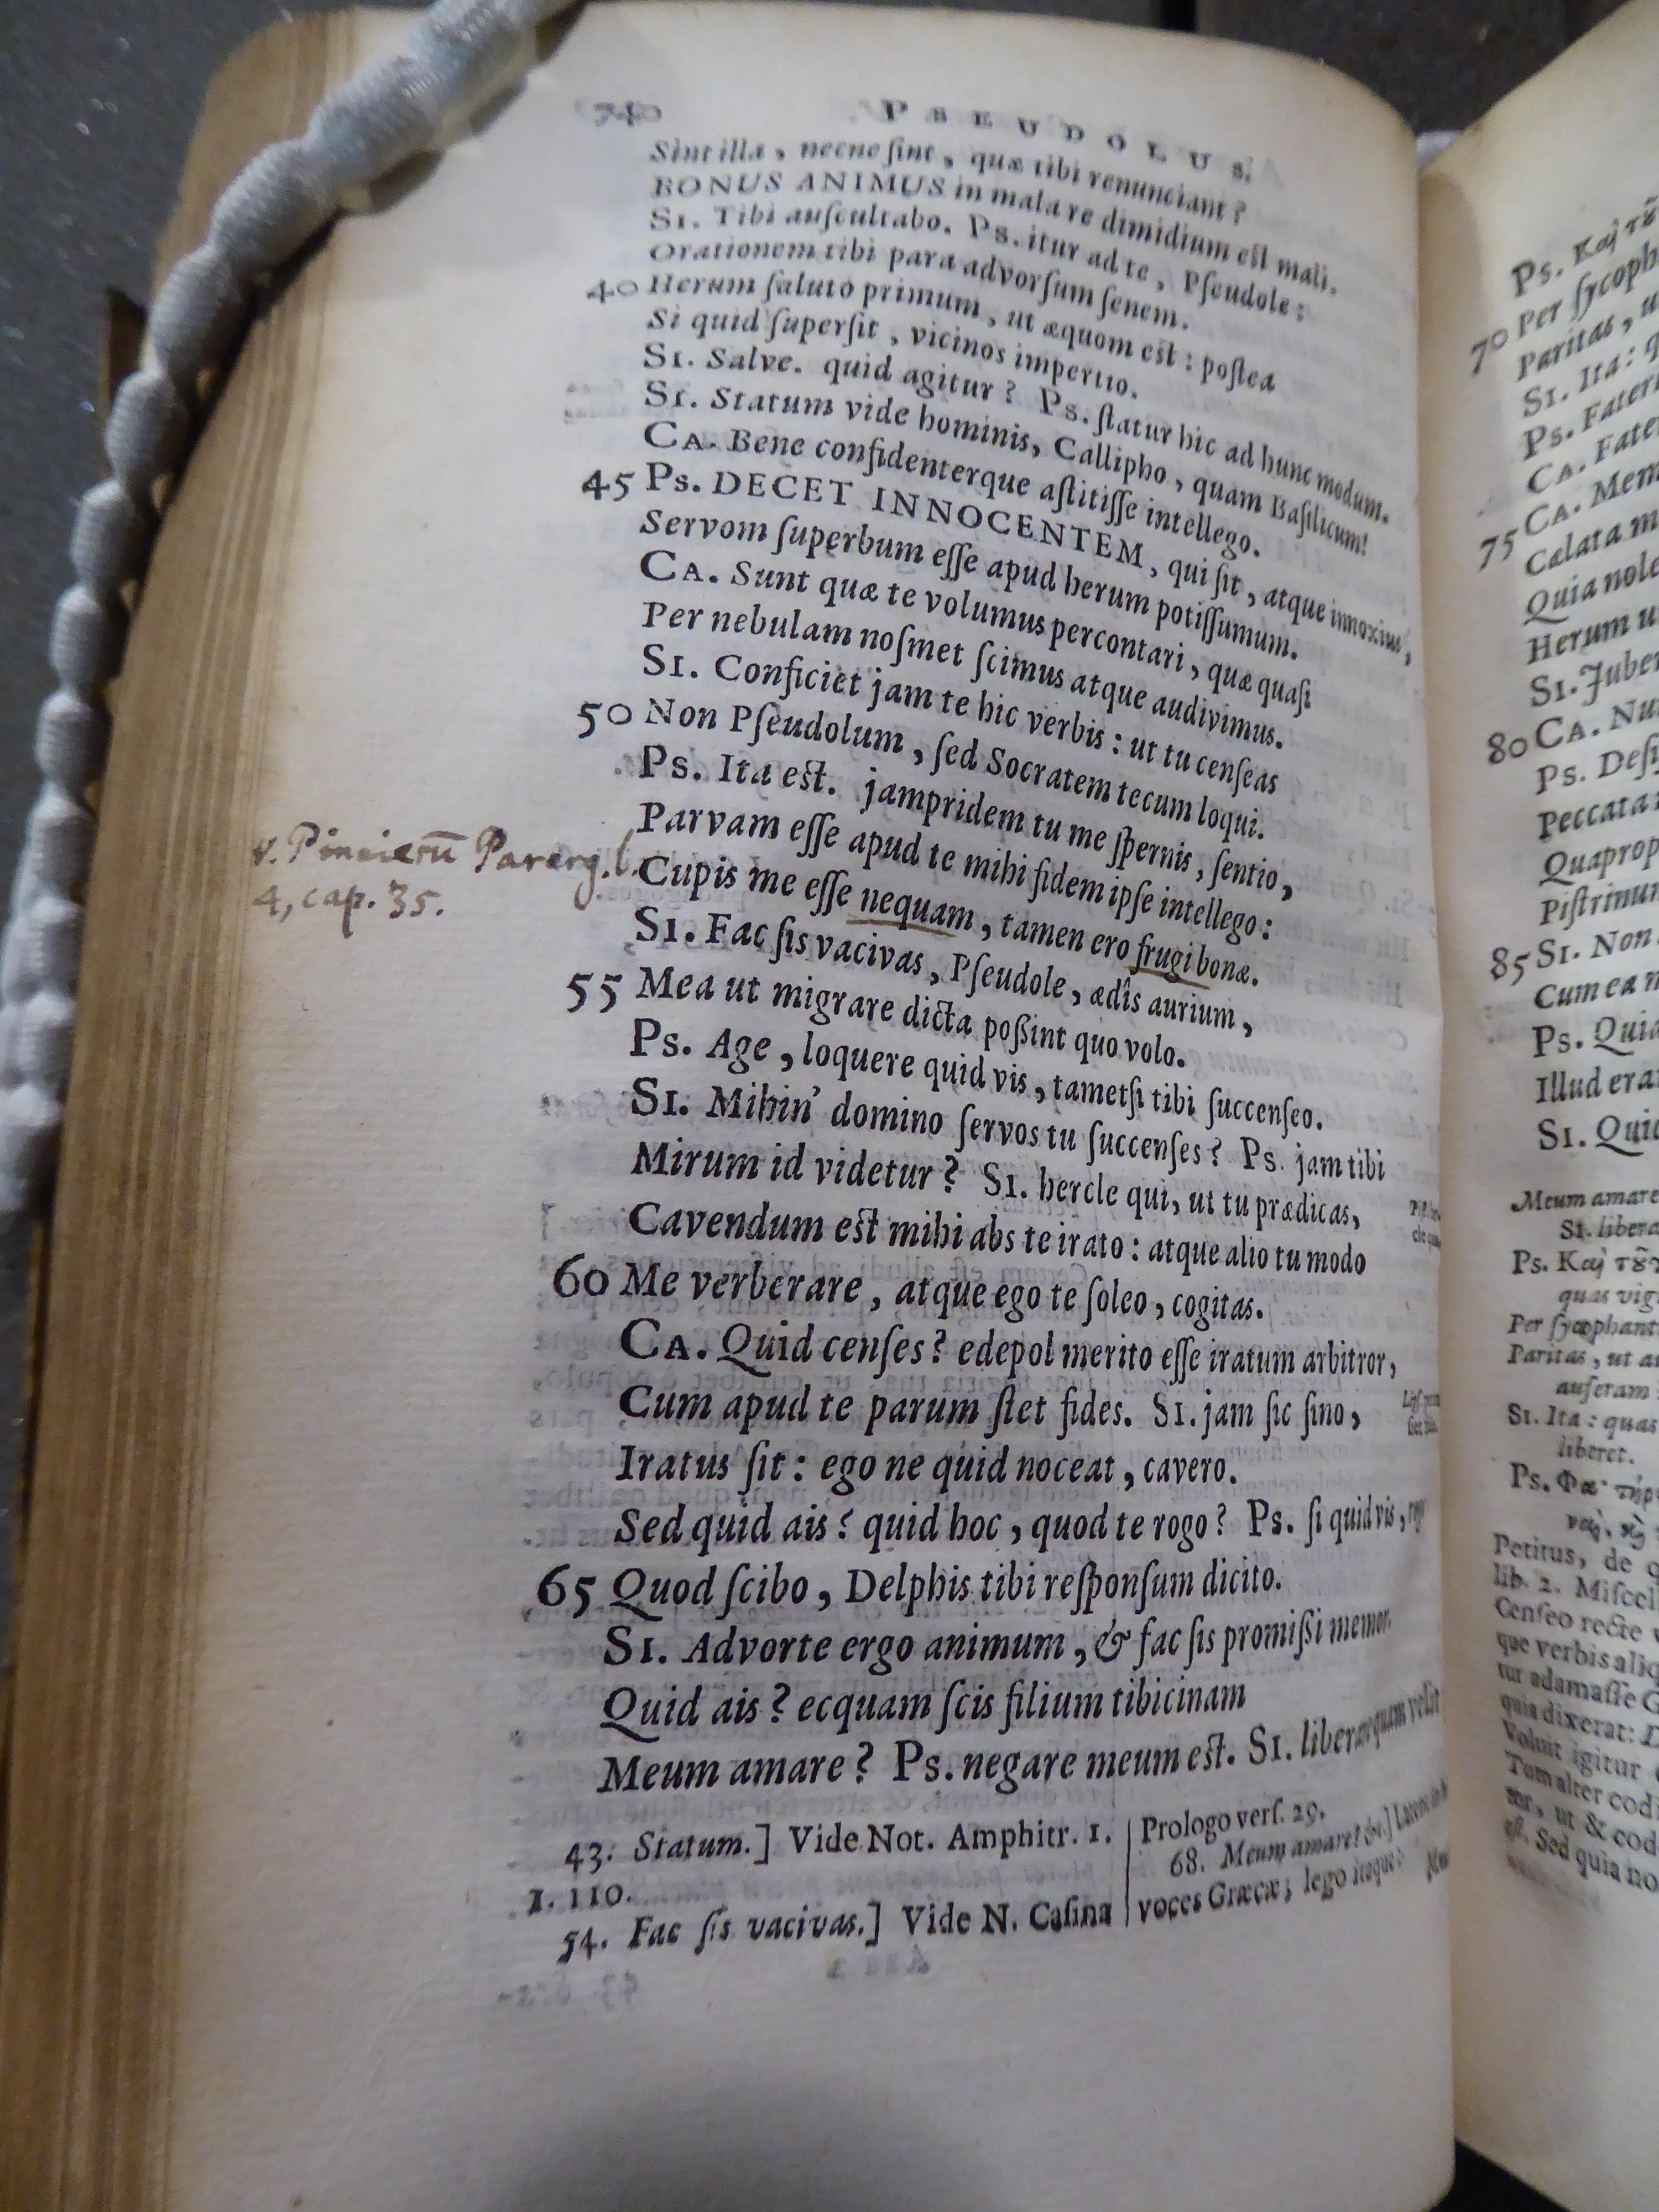 740 PSEUDOLUS.
Sint illa, necne ſint, quæ tibi renunciant?
BONUS ANIMUS in mala re dimidium eſt mali.
SI. Tibi auſcultabo. PS. itur ad te, Pſeudole:
Orationem tibi para advorſum ſenem.
40 Herum ſaluto primum, ut æquom eſt: poſtea
Si quid ſuperſit, vicinos impertio.
SI. Salve. quid agitur? PS. ſtatur hic ad hunc modum.
SI. Statum vide hominis, Callipho, quam Baſilicum!
CA. Bene confidenterque aſtitiſſe intellego.
45 PS. DECET INNOCENTEM, qui ſit, atque innoxius,
Servom ſuperbum eſſe apud herum potiſſumum.
CA. Sunt quæ te volumus percontari, quæ quaſi
Per nebulam noſmet ſcimus atque audivimus.
SI. Conficiet jam te hic verbis: ut tu cenſeas
50 Non Pſeudolum, ſed Socratem tecum loqui.
PS. Ita eſt. jampridem tu me ſpernis, ſentio,
Parvam eſſe apud te mihi fidem ipſe intellego:
v. Pincierū Parerg. l.
4, cap. 35.
Cupis me eſſe nequam, tamen ero frugi bonæ.
SI. Fac ſis vacivas, Pſeudole, ædîs aurium,
55 Mea ut migrare dicta poßint quo volo.
PS. Age, loquere quid vis, tametſi tibi ſuccenſeo.
SI. Mihin' domino ſervos tu ſuccenſes? PS. jam tibi
Mirum id videtur? SI. hercle qui, ut tu prædicas,
Cavendum eſt mihi abs te irato: atque alio tu modo
60 Me verberare, atque ego te ſoleo, cogitas.
CA. Quid cenſes? edepol merito eſſe iratum arbitror,
Cum apud te parum ſtet fides. SI. jam ſic ſino,
Iratus ſit: ego ne quid noceat, cavero.
Sed quid ais? quid hoc, quod te rogo? PS. ſi quid vis,
65 Quod ſcibo, Delphis tibi reſponſum dicito.
SI. Advorte ergo animum, & fac ſis promißi memor.
Quid ais? ecquam ſcis filium tibicinam
Meum amare? PS. negare meum eſt. SI. liberare quam velit
43. Statum.] Vide Not. Amphitr. 1.
1. 110.
54. Fac ſis vacivas.] Vide N. Caſina
Prologo verſ. 29.
68. Meum amare? &c.]
voces Græcæ; lego itaque:
PS. Καὶ
70 Per ſycoph
Paritas, u
SI. Ita: q
PS. Fateri
CA. Fate
75 CA. Mem
Calata m
Quia nole
Herum u
SI. Juber
80 CA. Nu
PS. Deſi
Peccata
Quaprop
Piſtrinum
85 SI. Non
Cum ea m
PS. Quia
Illud era
SI. Quid
Meum amare
SI. libera
PS. Καὶ
quas vig
Per ſycophant
Paritas, ut a
auferam
SI. Ita: quas
liberet.
PS.
Petitus, de q
lib. 2. Miſcell
Cenſeo recte
que verbis aliq
tur adamaſſe G
quia dixerat: D
Voluit igitur
Tum alter codi
ut & cod
Sed quia no